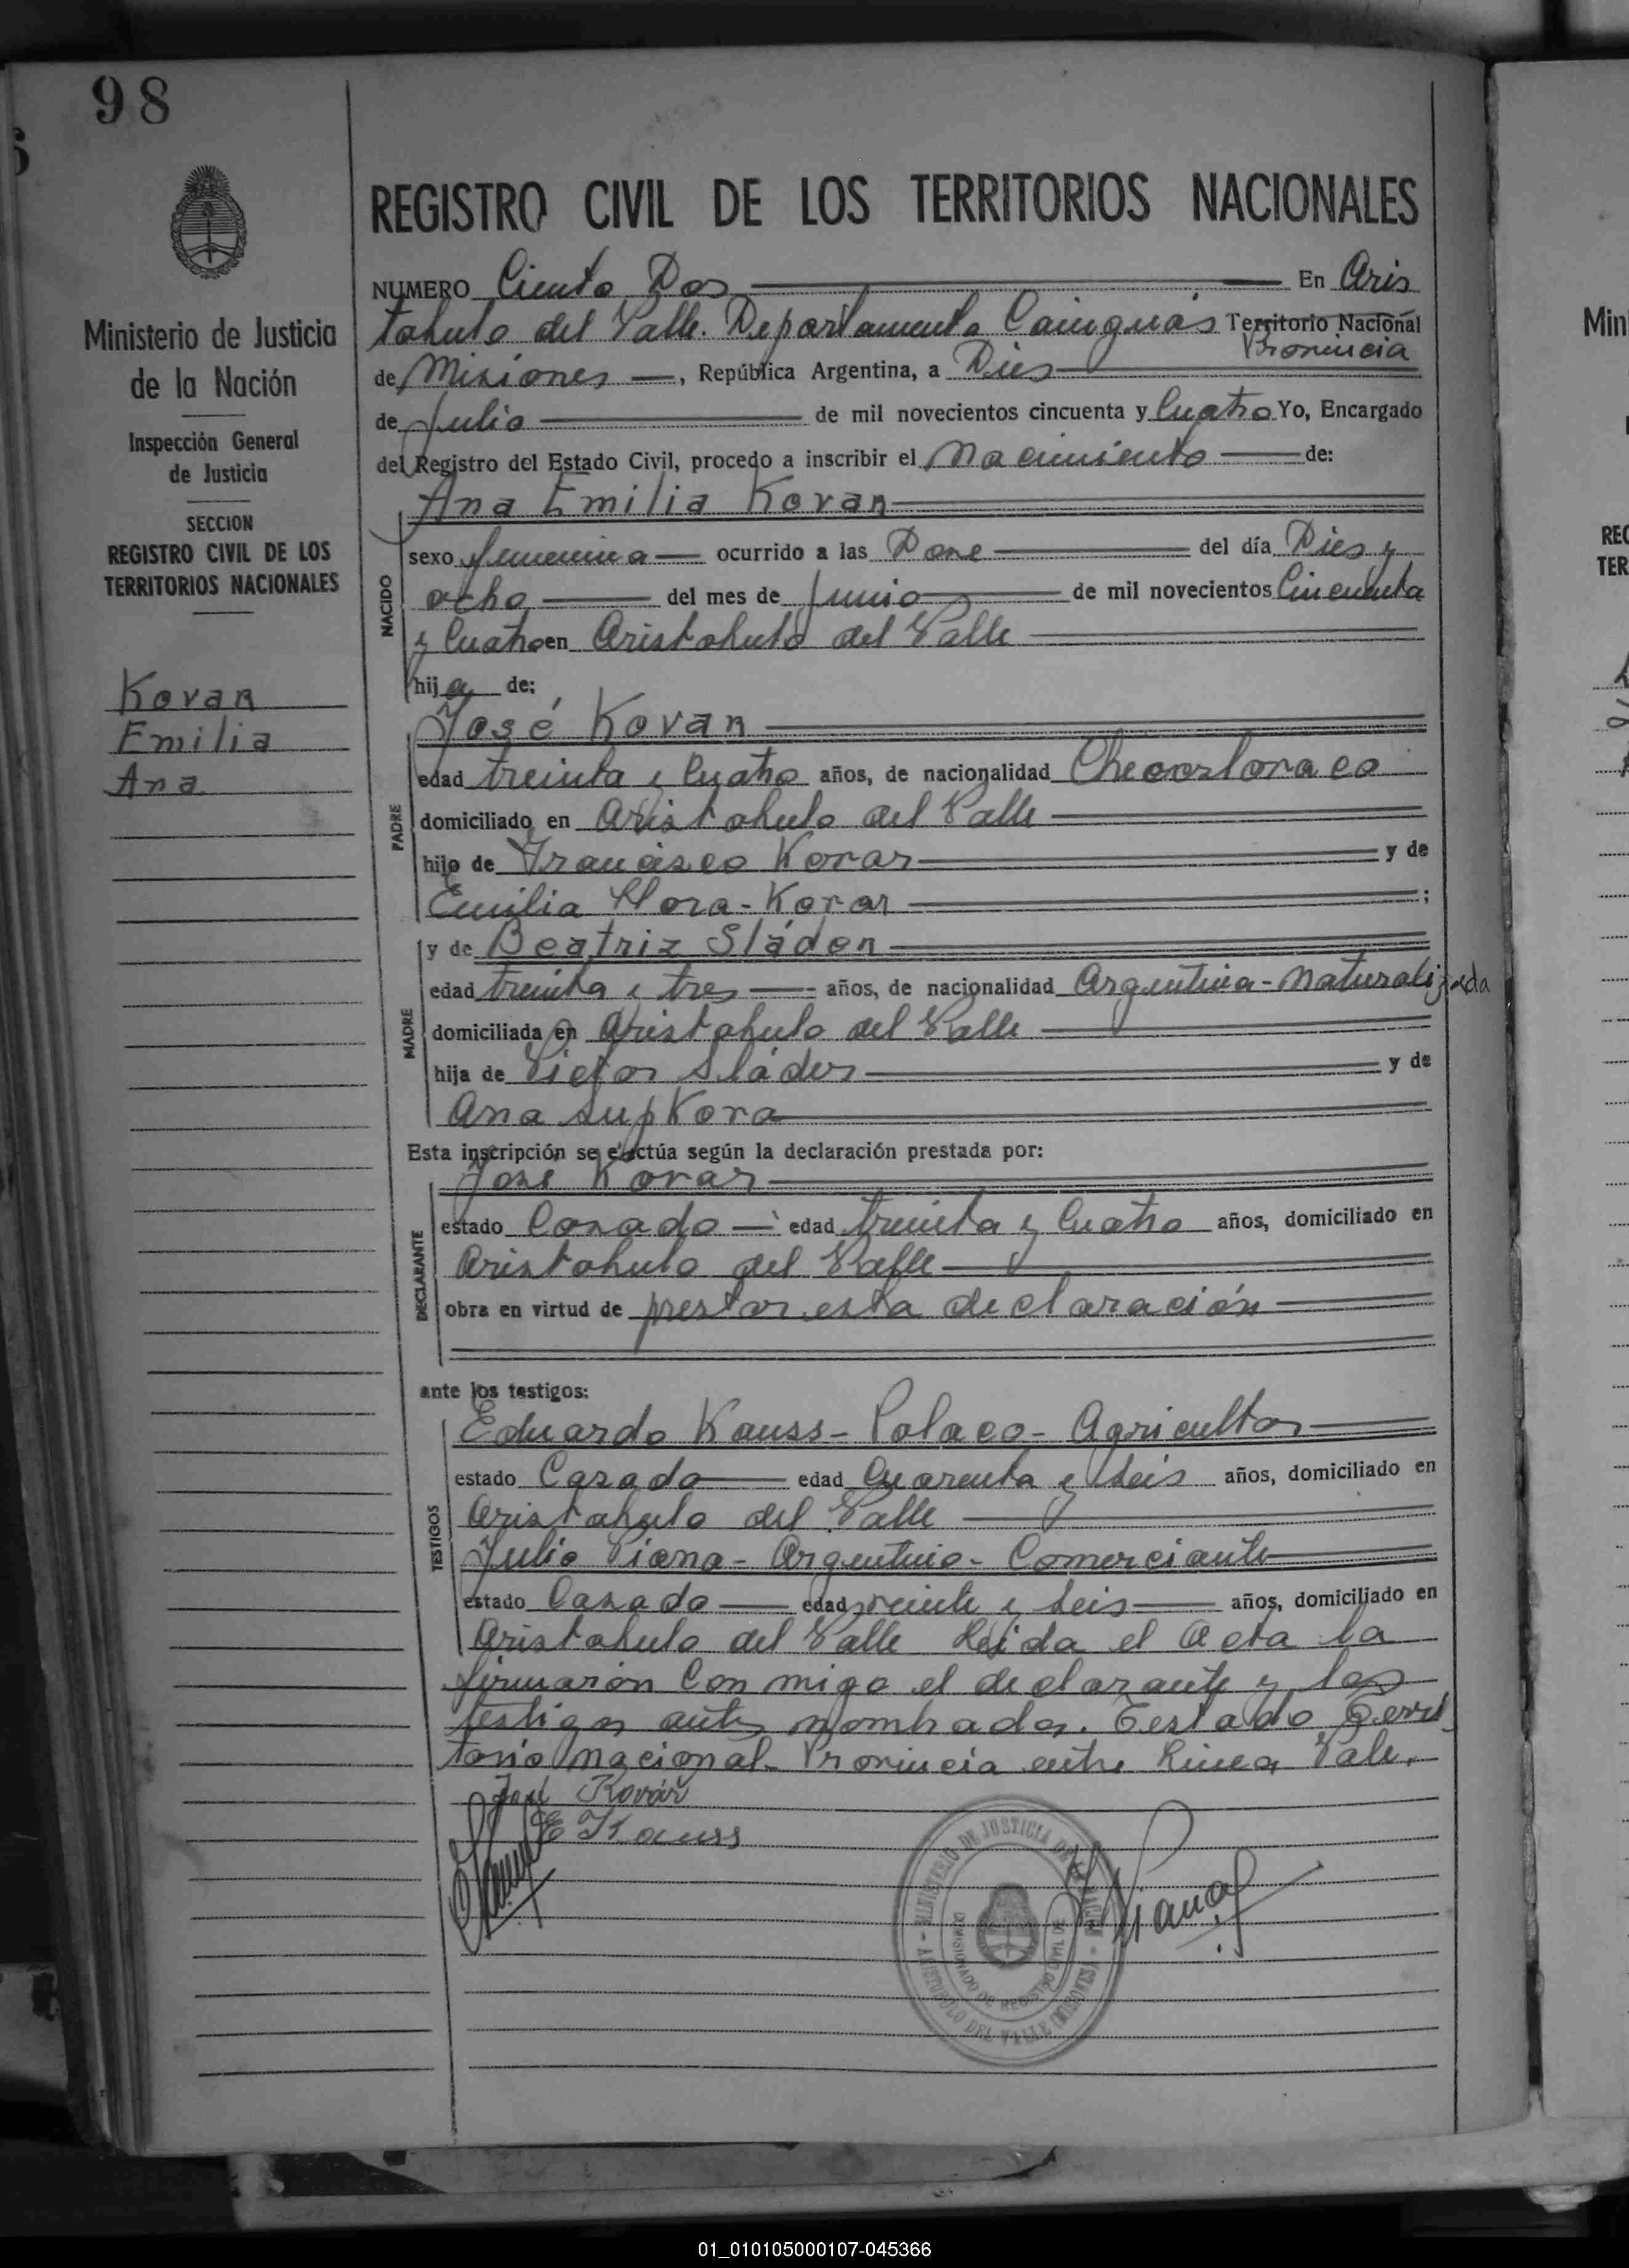 98
REGISTRO CIVIL DE LOS TERRITORIOS NACIONALES
Ministerio de Justicia
de la Nación
Inspección General
de Justicia
SECCION
REGISTRO CIVIL DE LOS
TERRITORIOS NACIONALES
Kovan
Emilia
Ana
NUMERO Ciento Dos En Aris
tobulo del Valle. Departamento Cainguás Territorio Nacional
Provincia
de Misiones, República Argentina, a Dies
de Julio de mil novecientos cincuenta y Cuatro Yo, Encargado
del Registro del Estado Civil, procedo a inscribir el Nacimiento de:
Ana Emilia Kovan
NACIDO
sexo femenina ocurrido a las Dose del día Dies y
ocho del mes de Junio de mil novecientos Cincuenta
y Cuatro en Aristobulo del Valle
hija de:
José Kovan
PADRE
edad treinta y Cuatro años, de nacionalidad Checoeslovaco
domiciliado en Aristobulo del Valle
hijo de Francisco Kovar y de
Emilia Hora - Kovar ;
y de Beatriz Sládon
MADRE
edad treinta y tres años, de nacionalidad Argentina - Naturalizada
domiciliada en Aristobulo del Valle
hija de Victor Sláder y de
Ana Supkova
Esta inscripción se efectúa según la declaración prestada por:
José Kovar
DECLARANTE
estado Casado edad treinta y Cuatro años, domiciliado en
Aristobulo del Valle
obra en virtud de prestar esta declaración
ante los testigos:
Eduardo Kauss - Polaco - Agricultor
TESTIGOS
estado Casado edad Cuarenta y Seis años, domiciliado en
Aristobulo del Valle
Julio Piana - Argentino - Comerciante
estado Casado edad veinte y seis años, domiciliado en
Aristobulo del Valle Leida el Acta la
firmaron Con migo el declarante y los
testigos antes nombrados. Testado Terri
torio Nacional - Provincia entre Linea Vale.
José Kovár
E Kauss
Piana
MINISTERIO DE JUSTICIA DE LA NACION
ARISTOBULO DEL VALLE (MISIONES)
01_010105000107-045366